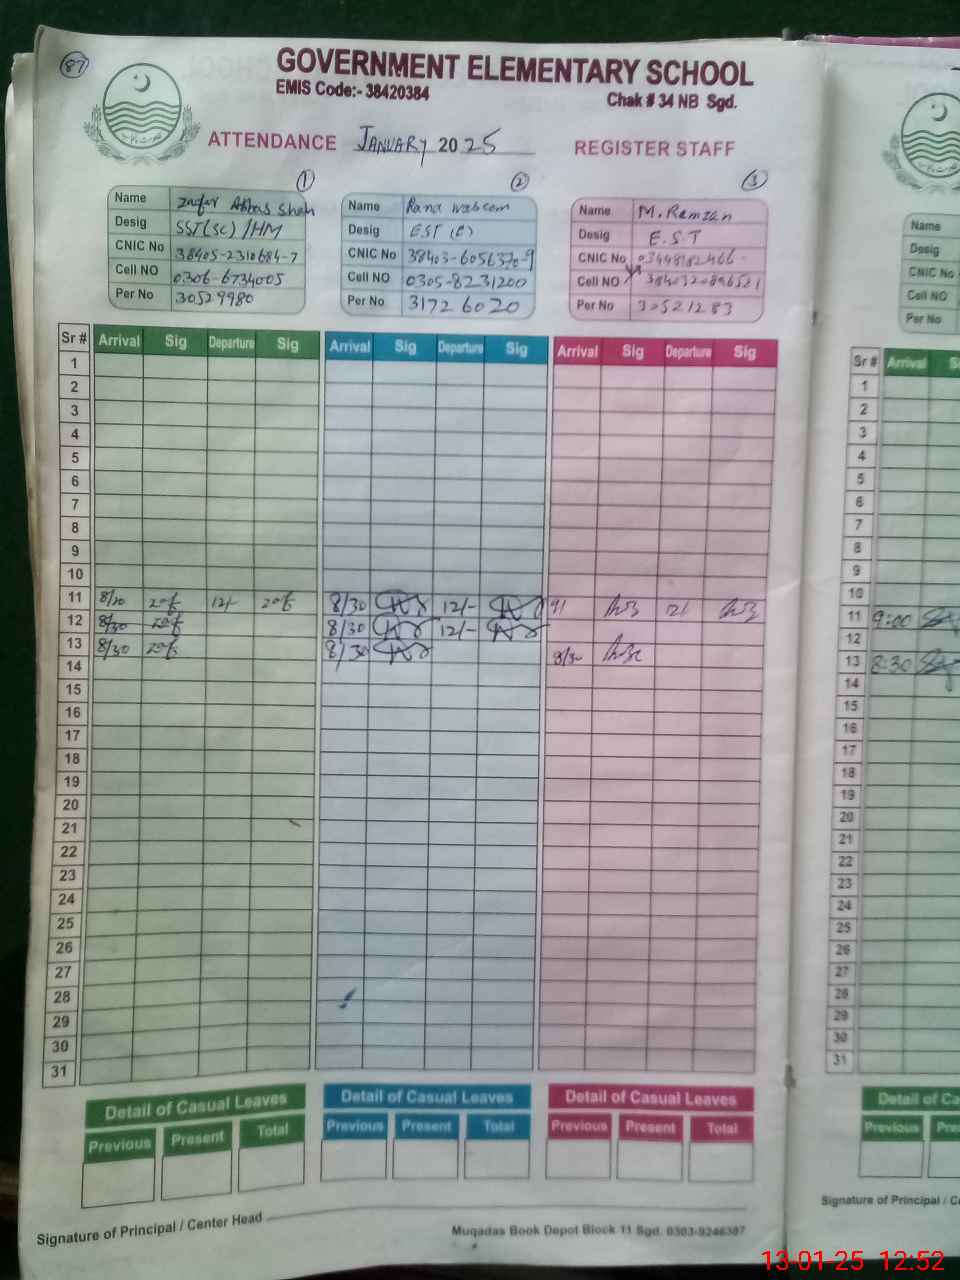 87
GOVERNMENT ELEMENTARY SCHOOL
EMIS Code:- 38420384
Chak # 34 NB Sgd.
ATTENDANCE JANUARY 2025 REGISTER STAFF
1 2 3
Name Zafar Abbas Shah
Desig SST(SC) /HM
CNIC No 38405-2310684-7
Cell NO 0306-6734005
Per No 30529980
Name Rana Waseem
Desig EST (C)
CNIC No 38403-6056370-9
Cell NO 0305-8231200
Per No 31726020
Name M. Ramzan
Desig E.S.T
CNIC No 03448182466
Cell NO
Per No 30521283
Name
Desig
CNIC No
Cell NO
Per No
Sr # Arrival Sig Departure Sig Arrival Sig Departure Sig Arrival Sig Departure Sig
1
2
3
4
5
6
7
8
9
10
11 8/30 12/- 8/30 12/- 9/ 12/
12 8/30 8/30 12/-
13 8/30 8/30 8/30
14
15
16
17
18
19
20
21
22
23
24
25
26
27
28
29
30
31
Sr # Arrival
1
2
3
4
5
6
7
8
9
10
11 9:00
12
13 8:30
14
15
16
17
18
19
20
21
22
23
24
25
26
27
28
29
30
31
Detail of Casual Leaves Detail of Casual Leaves Detail of Casual Leaves Detail of Ca
Previous Present Total Previous Present Total Previous Present Total Previous Pre
Signature of Principal / Center Head
Muqadas Book Depot Block 11 Sgd. 0303-9246387
Signature of Principal / C
13-01-25 12:52